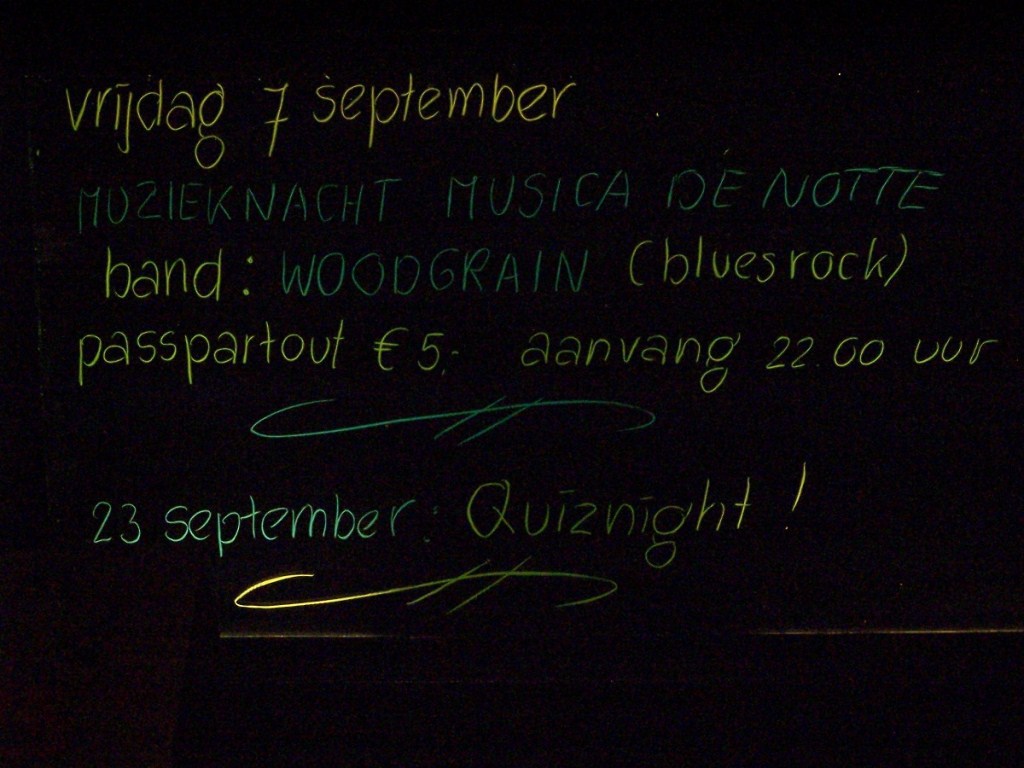 vrijdag 7 september
MUZIEKNACHT MUSICA DE NOTTE
band: WOODGRAIN (bluesrock)
passpartout € 5,- aanvang 22.00 uur
23 september: Quiznight !